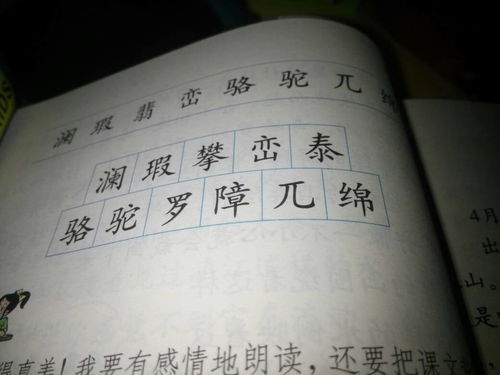 澜瑕翡峦骆驼兀绵
澜瑕攀峦泰
骆驼罗障兀绵
4月
出
山。
是
得真美！我要有感情地朗读，还要把课文